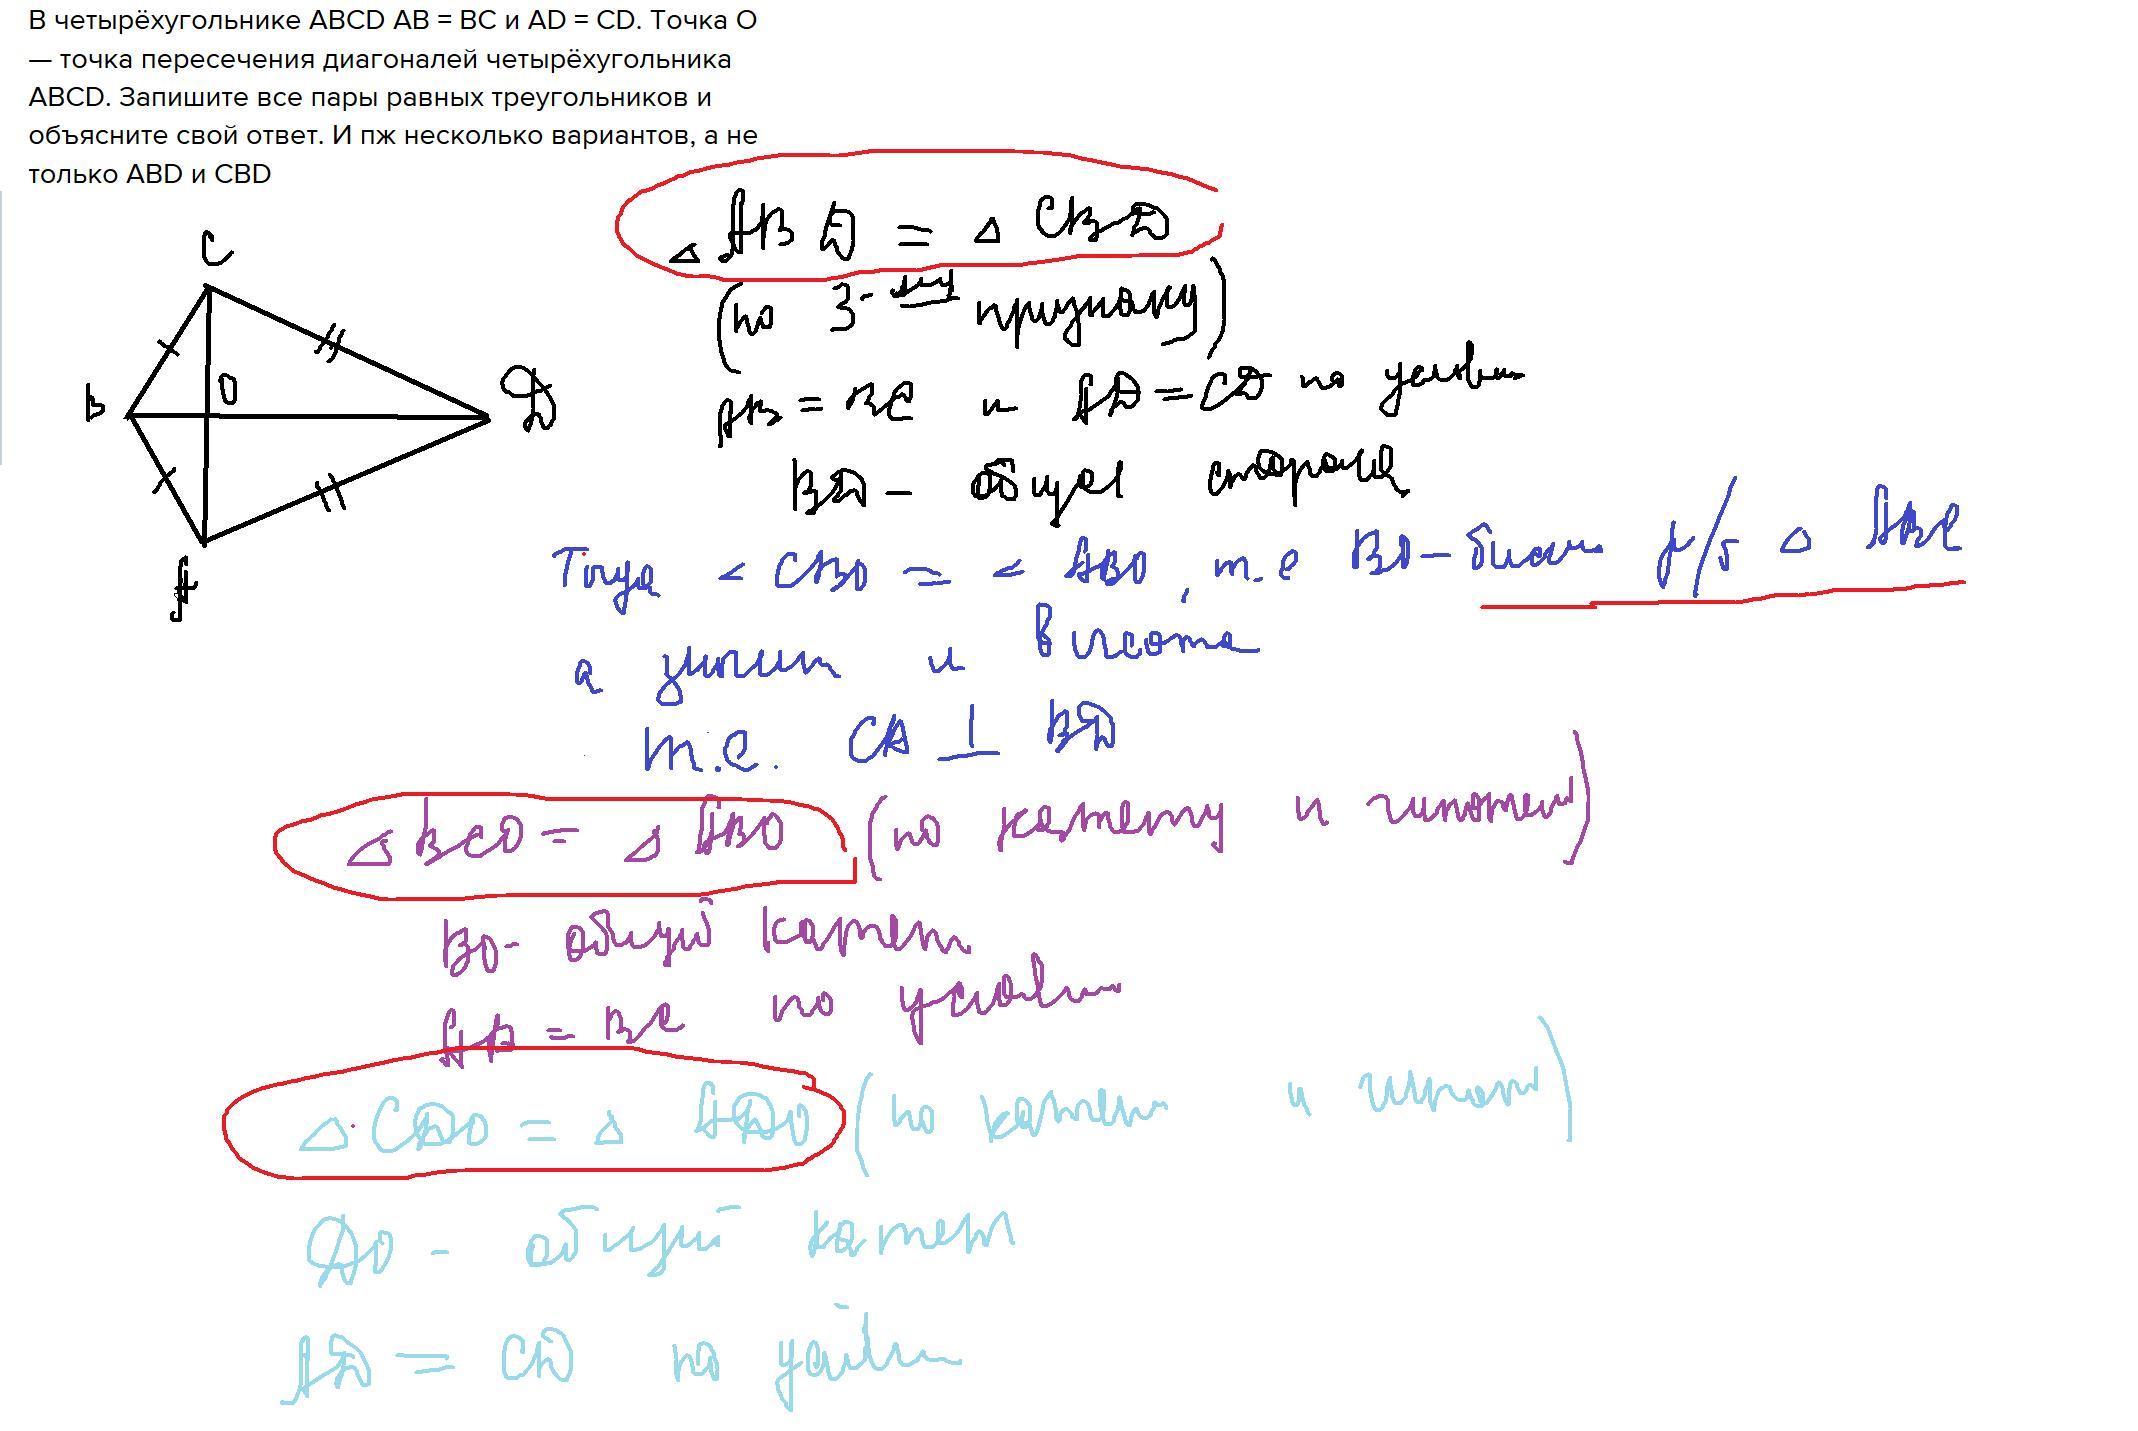 В четырёхугольнике ABCD AB = BC и AD = CD. Точка О
— точка пересечения диагоналей четырёхугольника
ABCD. Запишите все пары равных треугольников и
объясните свой ответ. И пж несколько вариантов, а не
только ABD и CBD
C
B
O
D
A
△ ABD = △ CBD
(по 3-му признаку)
AB = BC и AD = CD по условию
BD – общая сторона
Тогда ∠ CBO = ∠ ABO, т.е BO – бисс р/б △ ABC
а значит и высота
т.е. CA ⊥ BD
△ BCO = △ ABO (по катету и гипотен)
BO - общий катет
AB = BC по услови
△ CDO = △ ADO (по катет и гипот)
DO - общий катет
AD = CD по услови